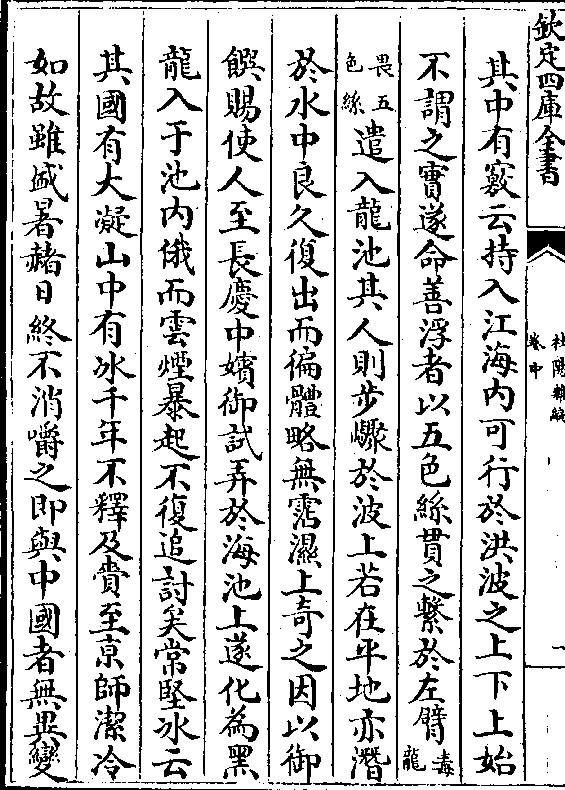 欽定四庫全書
杜陽雜編
卷中
一
其中有竅云持入江海内可行於洪波之上下上始
不謂之實遂命善浮者以五色絲貫之繫於左臂毒龍
畏五色絲遣入龍池其人則步驟於波上若在平地亦潛
於水中良久復出而徧體略無霑濕上奇之因以御
饌賜使人至長慶中嬪御試弄於海池上遂化為黑
龍入于池内俄而雲煙暴起不復追討矣常堅冰云
其國有大凝山中有冰千年不釋及賫至京師潔冷
如故雖盛暑赭日終不消嚼之即與中國者無異變